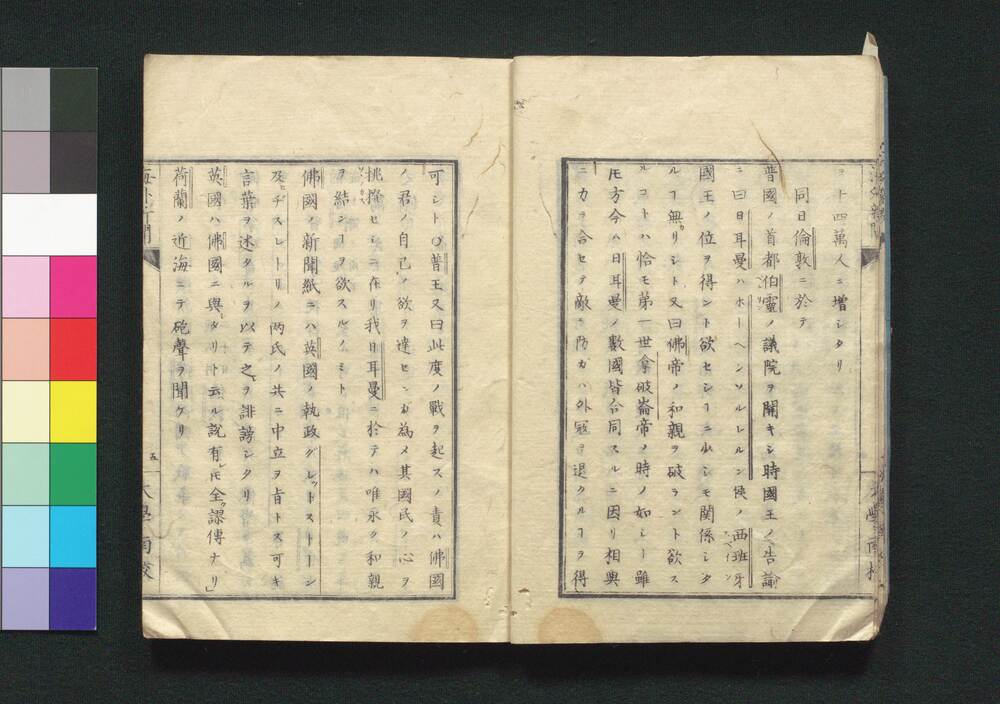 ヲ十四萬人ニ増シタリ
同日倫敦ニ於テ
普國ノ首都伯靈ノ議院ヲ開キシ時國王ノ告諭
ニ曰日耳曼ハホーヘンソルレルン候ノ西班牙
國王ノ位ヲ得ント欲セシヿニ少シモ関係シタ
ルヿ無リシト又曰佛帝ノ和親ヲ破ラント欲ス
ルコトハ恰モ第一世拿破崙帝ノ時ノ如シ雖
𪜈方今ハ日耳曼ノ數國皆合同スルニ因リ相與
ニカヲ合セテ敵ニ防カハ外冦ヲ退クルヿヲ得
可シト○普王又曰此度ノ戰ヲ起スノ責ハ佛國
ノ君ノ自己ノ欲ヲ達センガ為メ其國民ノ心ヲ
挑撥セシニ在リ我日耳曼ニ於テハ唯永ク和親
ヲ結ンヿヲ欲スルノミト
佛國ノ新聞紙ニハ英國ノ執政グレットストーン
及ヒヂスレートリノ两氏ノ共ニ中立ヲ旨トス可キ
言葉ヲ述タルヲ以テ之ヲ誹謗シタリ
英國ハ佛國ニ與タリト云ル説有レ𪜈全ク謬傳ナリ
荷蘭ノ近海ニテ砲聲ヲ聞ケリ
海外新聞
五
大學南校